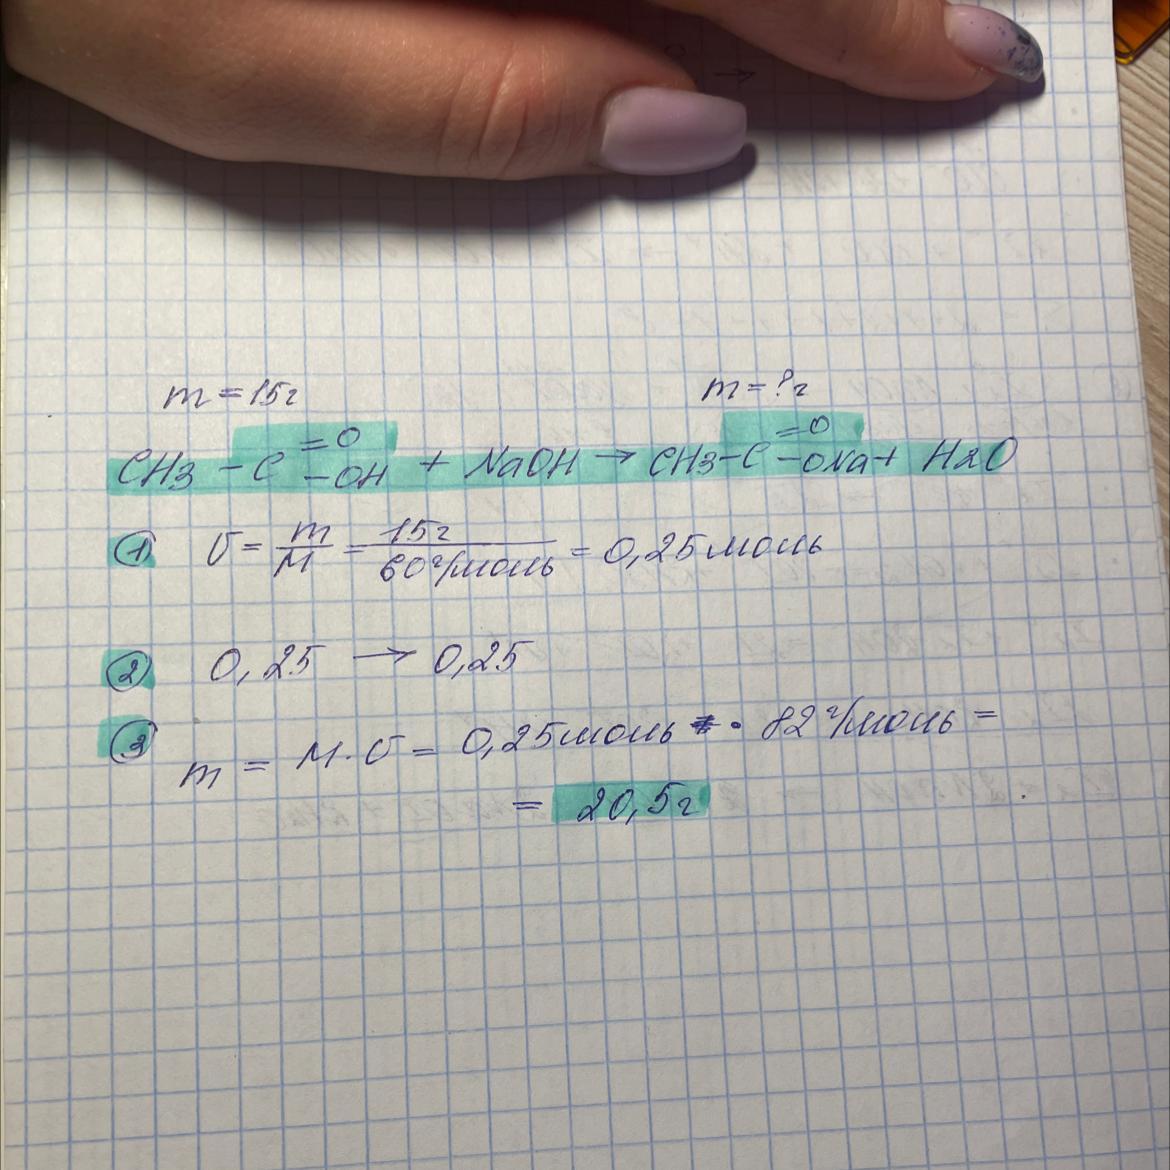 m = 15г m = ?г
=O =O
CH3 - C -OH + NaOH → CH3-C -ONa + H2O
① υ = m/M = 15г/60г/моль = 0,25моль
② 0,25 → 0,25
③ m = M·υ = 0,25моль · 82г/моль =
= 20,5г